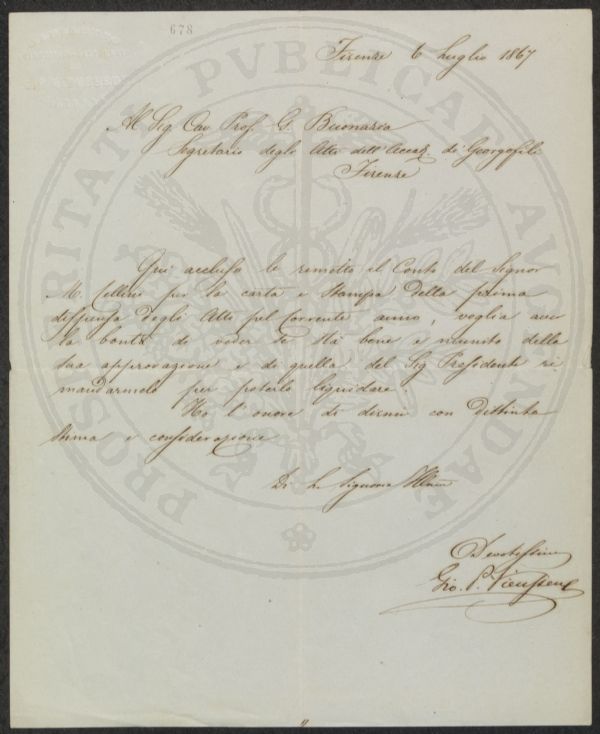 678
Firenze 6 Luglio 1867
Al Sig. Cav. Prof. G. Buonarva
Segretario degli Atti dell'Accad. de' Georgofili
Firenze
Qui accluso le rimetto il Conto del Signor
M. Cellini per la carta e stampa della prima
dispensa degli Atti pel Corrente anno, voglia aver
la bontà di veder se stà bene e munito della
sua approvazione e di quella del Sig Presidente ri
mandarmelo per poterlo liquidare
Ho l'onore di dirmi con distinta
stima e considerazione
Di L. Signoria Illma
Devotissimo
Gio. P. Vieusseux
PROSPERITATI PVBLICAE AVGENDAE